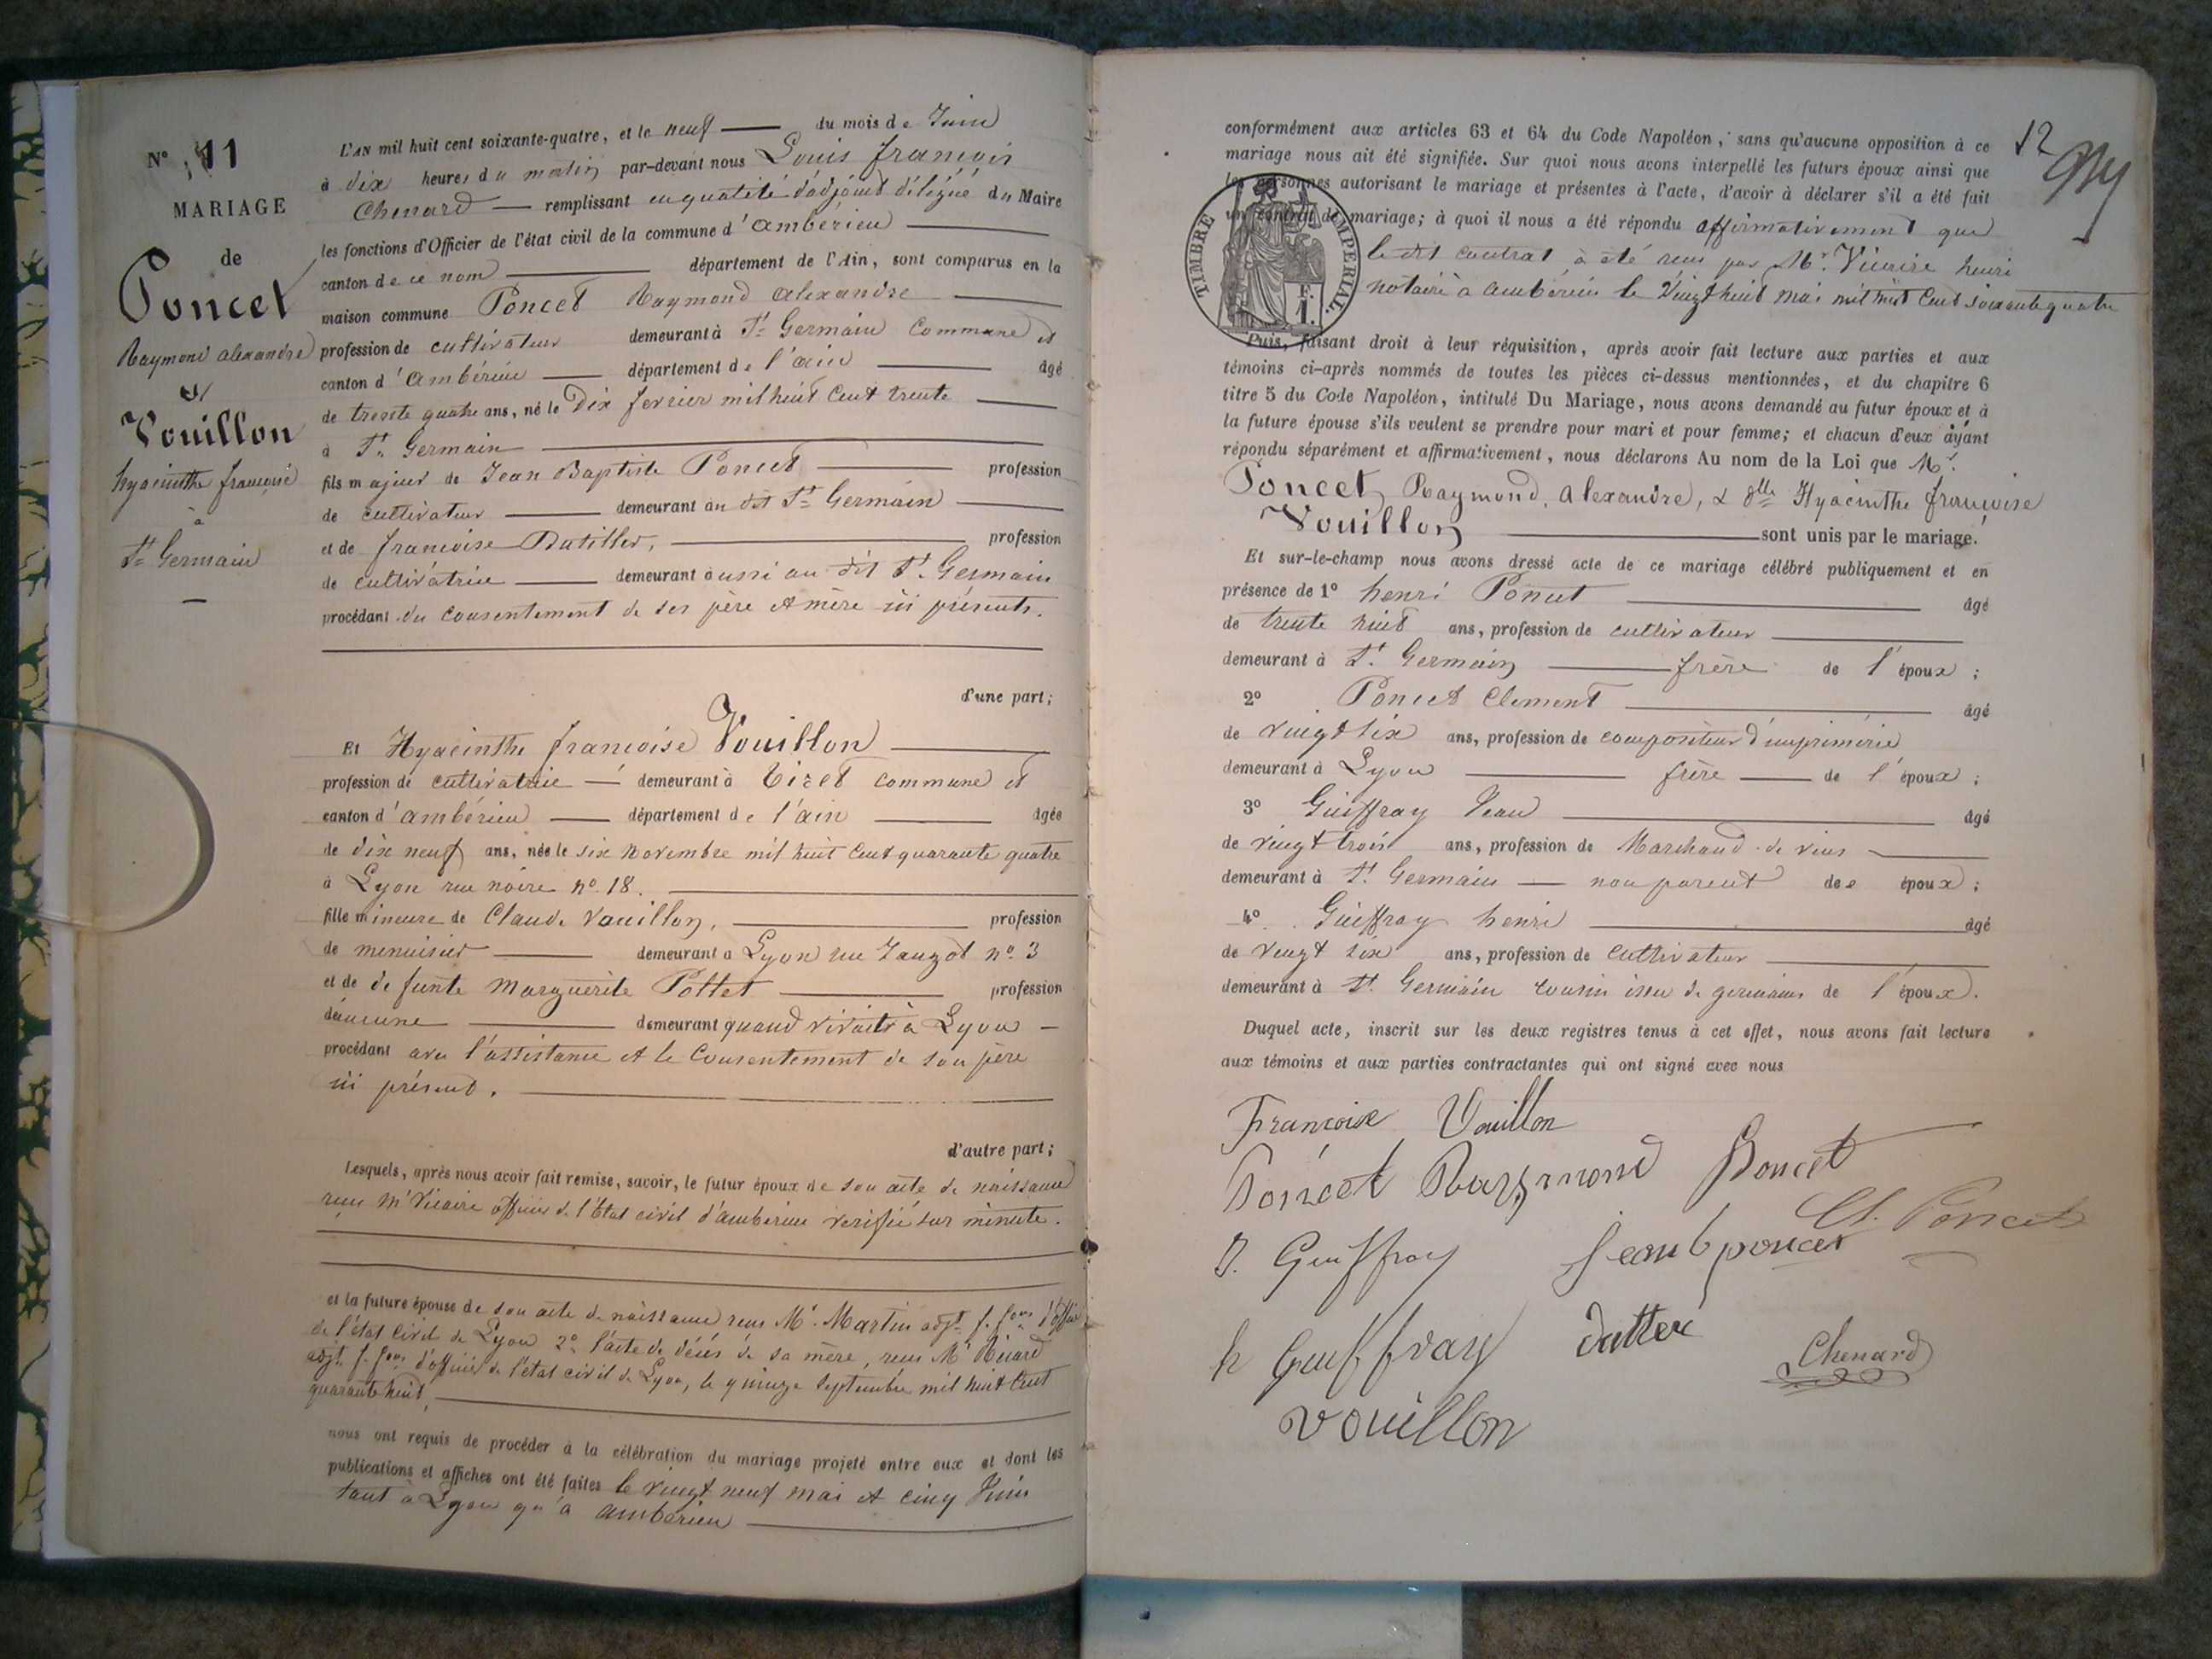 N° 11
MARIAGE
de
Poncet
Raymond alexandre
et
Vouillon
hyacinthe françoise
à
St Germain
L'AN mil huit cent soixante-quatre, et le neuf du mois de Juin
à dix heures du matin par-devant nous Louis françois
Chenard remplissant en qualité d'adjoint délégué du Maire
les fonctions d'Officier de l'état civil de la commune d'ambérieu
canton de ce nom département de l'Ain, sont comparus en la
maison commune Poncet Raymond alexandre
profession de cultivateur demeurant à St Germain Commune et
canton d'ambérieu département de l'ain âgé
de trente quatre ans, né le Dix fevrier mil huit Cent trente
à St Germain
fils majeur de Jean Baptiste Poncet profession
de cultivateur demeurant au dit St Germain
et de francoise profession
de cultivatrice demeurant aussi au dit St Germain
procédant du consentement de ses père et mère ici présents.
d'une part;
Et Hyacinthe francoise Vouillon
profession de cultivatrice demeurant à Tiret commune et
canton d'ambérieu département de l'ain âgée
de dix neuf ans, née le six Novembre mil huit Cent quarante quatre
à Lyon rue noire n° 18.
fille mineure de Claude Vouillon, profession
de menuisier demeurant à Lyon rue n° 3
et de défunte Marguerite Pottet profession
d'aucune demeurant quand vivait à Lyon
procédant avec l'assistance et le Consentement de son père
ici présent.
d'autre part;
Lesquels, après nous avoir fait remise, savoir, le futur époux de son acte de naissance
reçu Mr Vicaire officier de l'état civil d'ambérieu verifié sur minute.
et la future épouse de son acte de naissance reçu Mr. Martin adjt. f. fons d'officier
de l'état civil de Lyon 2° l'acte de décès de sa mère, reçu Mr
adjt. f. fons d'officier de l'état civil de Lyon, le quinze Septembre mil huit Cent
quarante huit,
nous ont requis de procéder à la célébration du mariage projeté entre eux et dont les
publications et affiches ont été faites le vingt neuf mai et cinq Juin
tant à Lyon qu'à ambérieu
12
conformément aux articles 63 et 64 du Code Napoléon, sans qu'aucune opposition à ce
mariage nous ait été signifiée. Sur quoi nous avons interpellé les futurs époux ainsi que
les personnes autorisant le mariage et présentes à l'acte, d'avoir à déclarer s'il a été fait
un contrat de mariage; à quoi il nous a été répondu affirmativement que
le dit contrat à été reçu par Mr. Vicaire henri
notaire à ambérieu le vingt huit mai mil huit Cent soixante quatre
TIMBRE IMPERIAL.
F.
1.
Puis, faisant droit à leur réquisition, après avoir fait lecture aux parties et aux
témoins ci-après nommés de toutes les pièces ci-dessus mentionnées, et du chapitre 6
titre 5 du Code Napoléon, intitulé Du Mariage, nous avons demandé au futur époux et à
la future épouse s'ils veulent se prendre pour mari et pour femme; et chacun d'eux ayant
répondu séparément et affirmativement, nous déclarons Au nom de la Loi que Mr.
Poncet Raymond, alexandre, & dlle Hyacinthe françoise
Vouillon sont unis par le mariage.
Et sur-le-champ nous avons dressé acte de ce mariage célébré publiquement et en
présence de 1° henri Poncet âgé
de trente huit ans, profession de cultivateur
demeurant à St. Germain frère de l'époux;
2° Poncet Clement âgé
de vingt six ans, profession de compositeur d'imprimerie
demeurant à Lyon frère de l'époux;
3° Guiffray Jean âgé
de vingt trois ans, profession de Marchand de vins
demeurant à St. Germain non parent des époux;
4° Guiffray henri âgé
de vingt six ans, profession de Cultivateur
demeurant à St. Germain cousin issu de germains de l'époux.
Duquel acte, inscrit sur les deux registres tenus à cet effet, nous avons fait lecture
aux témoins et aux parties contractantes qui ont signé avec nous
Françoise Vouillon
Poncet Raymond Poncet
Cl. Poncet
J. Guiffray Jean b poncet
h Guiffray Chenard
vouillon